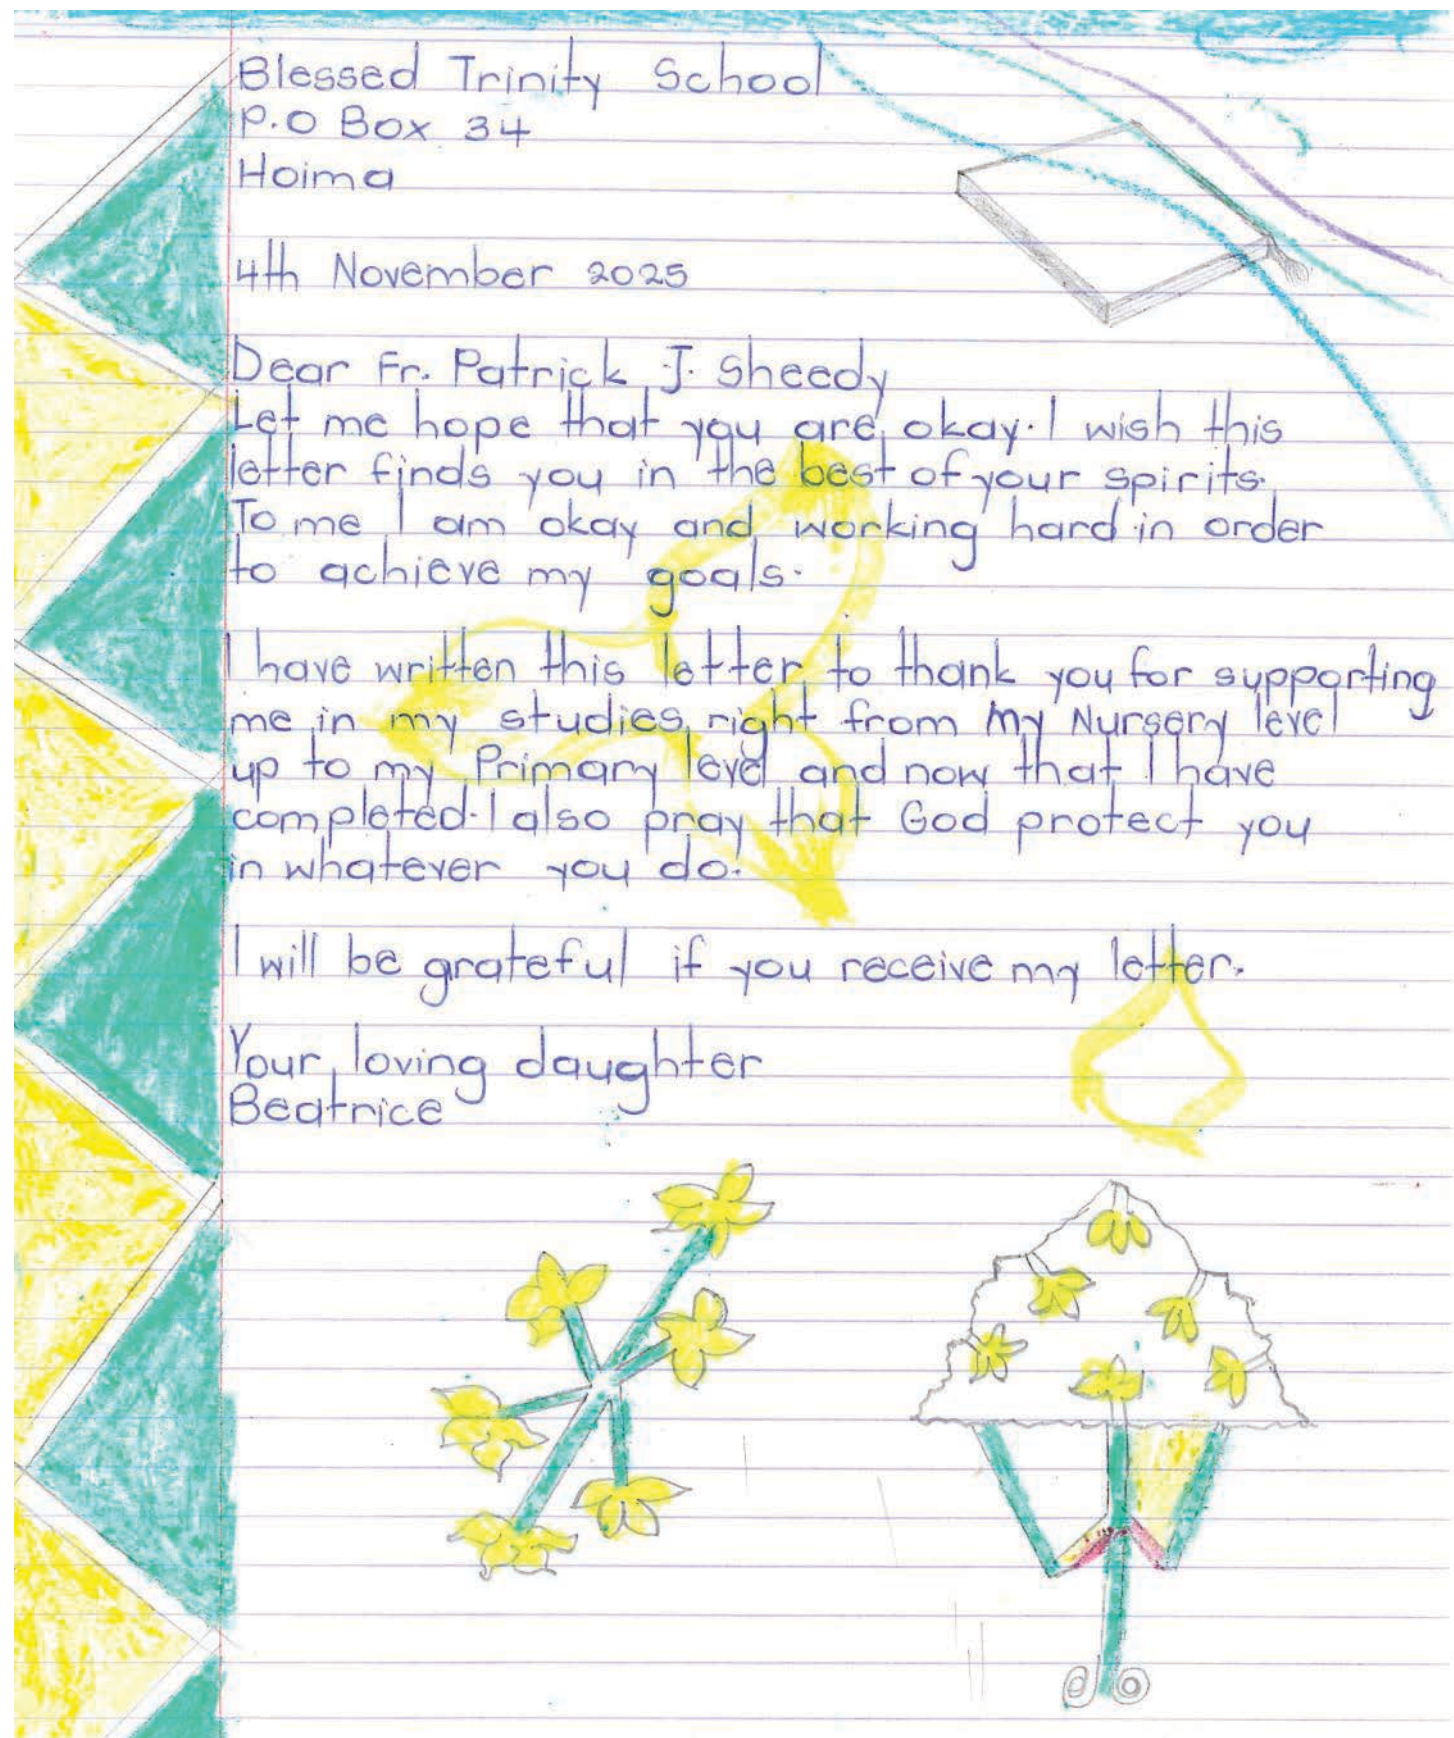 Blessed Trinity School
P.O Box 34
Hoima
4th November 2025
Dear Fr. Patrick J. Sheedy
Let me hope that you are okay. I wish this
letter finds you in the best of your spirits.
To me I am okay and working hard in order
to achieve my goals.
I have written this letter to thank you for supporting
me in my studies right from my Nursery level
up to my Primary level and now that I have
completed. I also pray that God protect you
in whatever you do.
I will be grateful if you receive my letter.
Your loving daughter
Beatrice